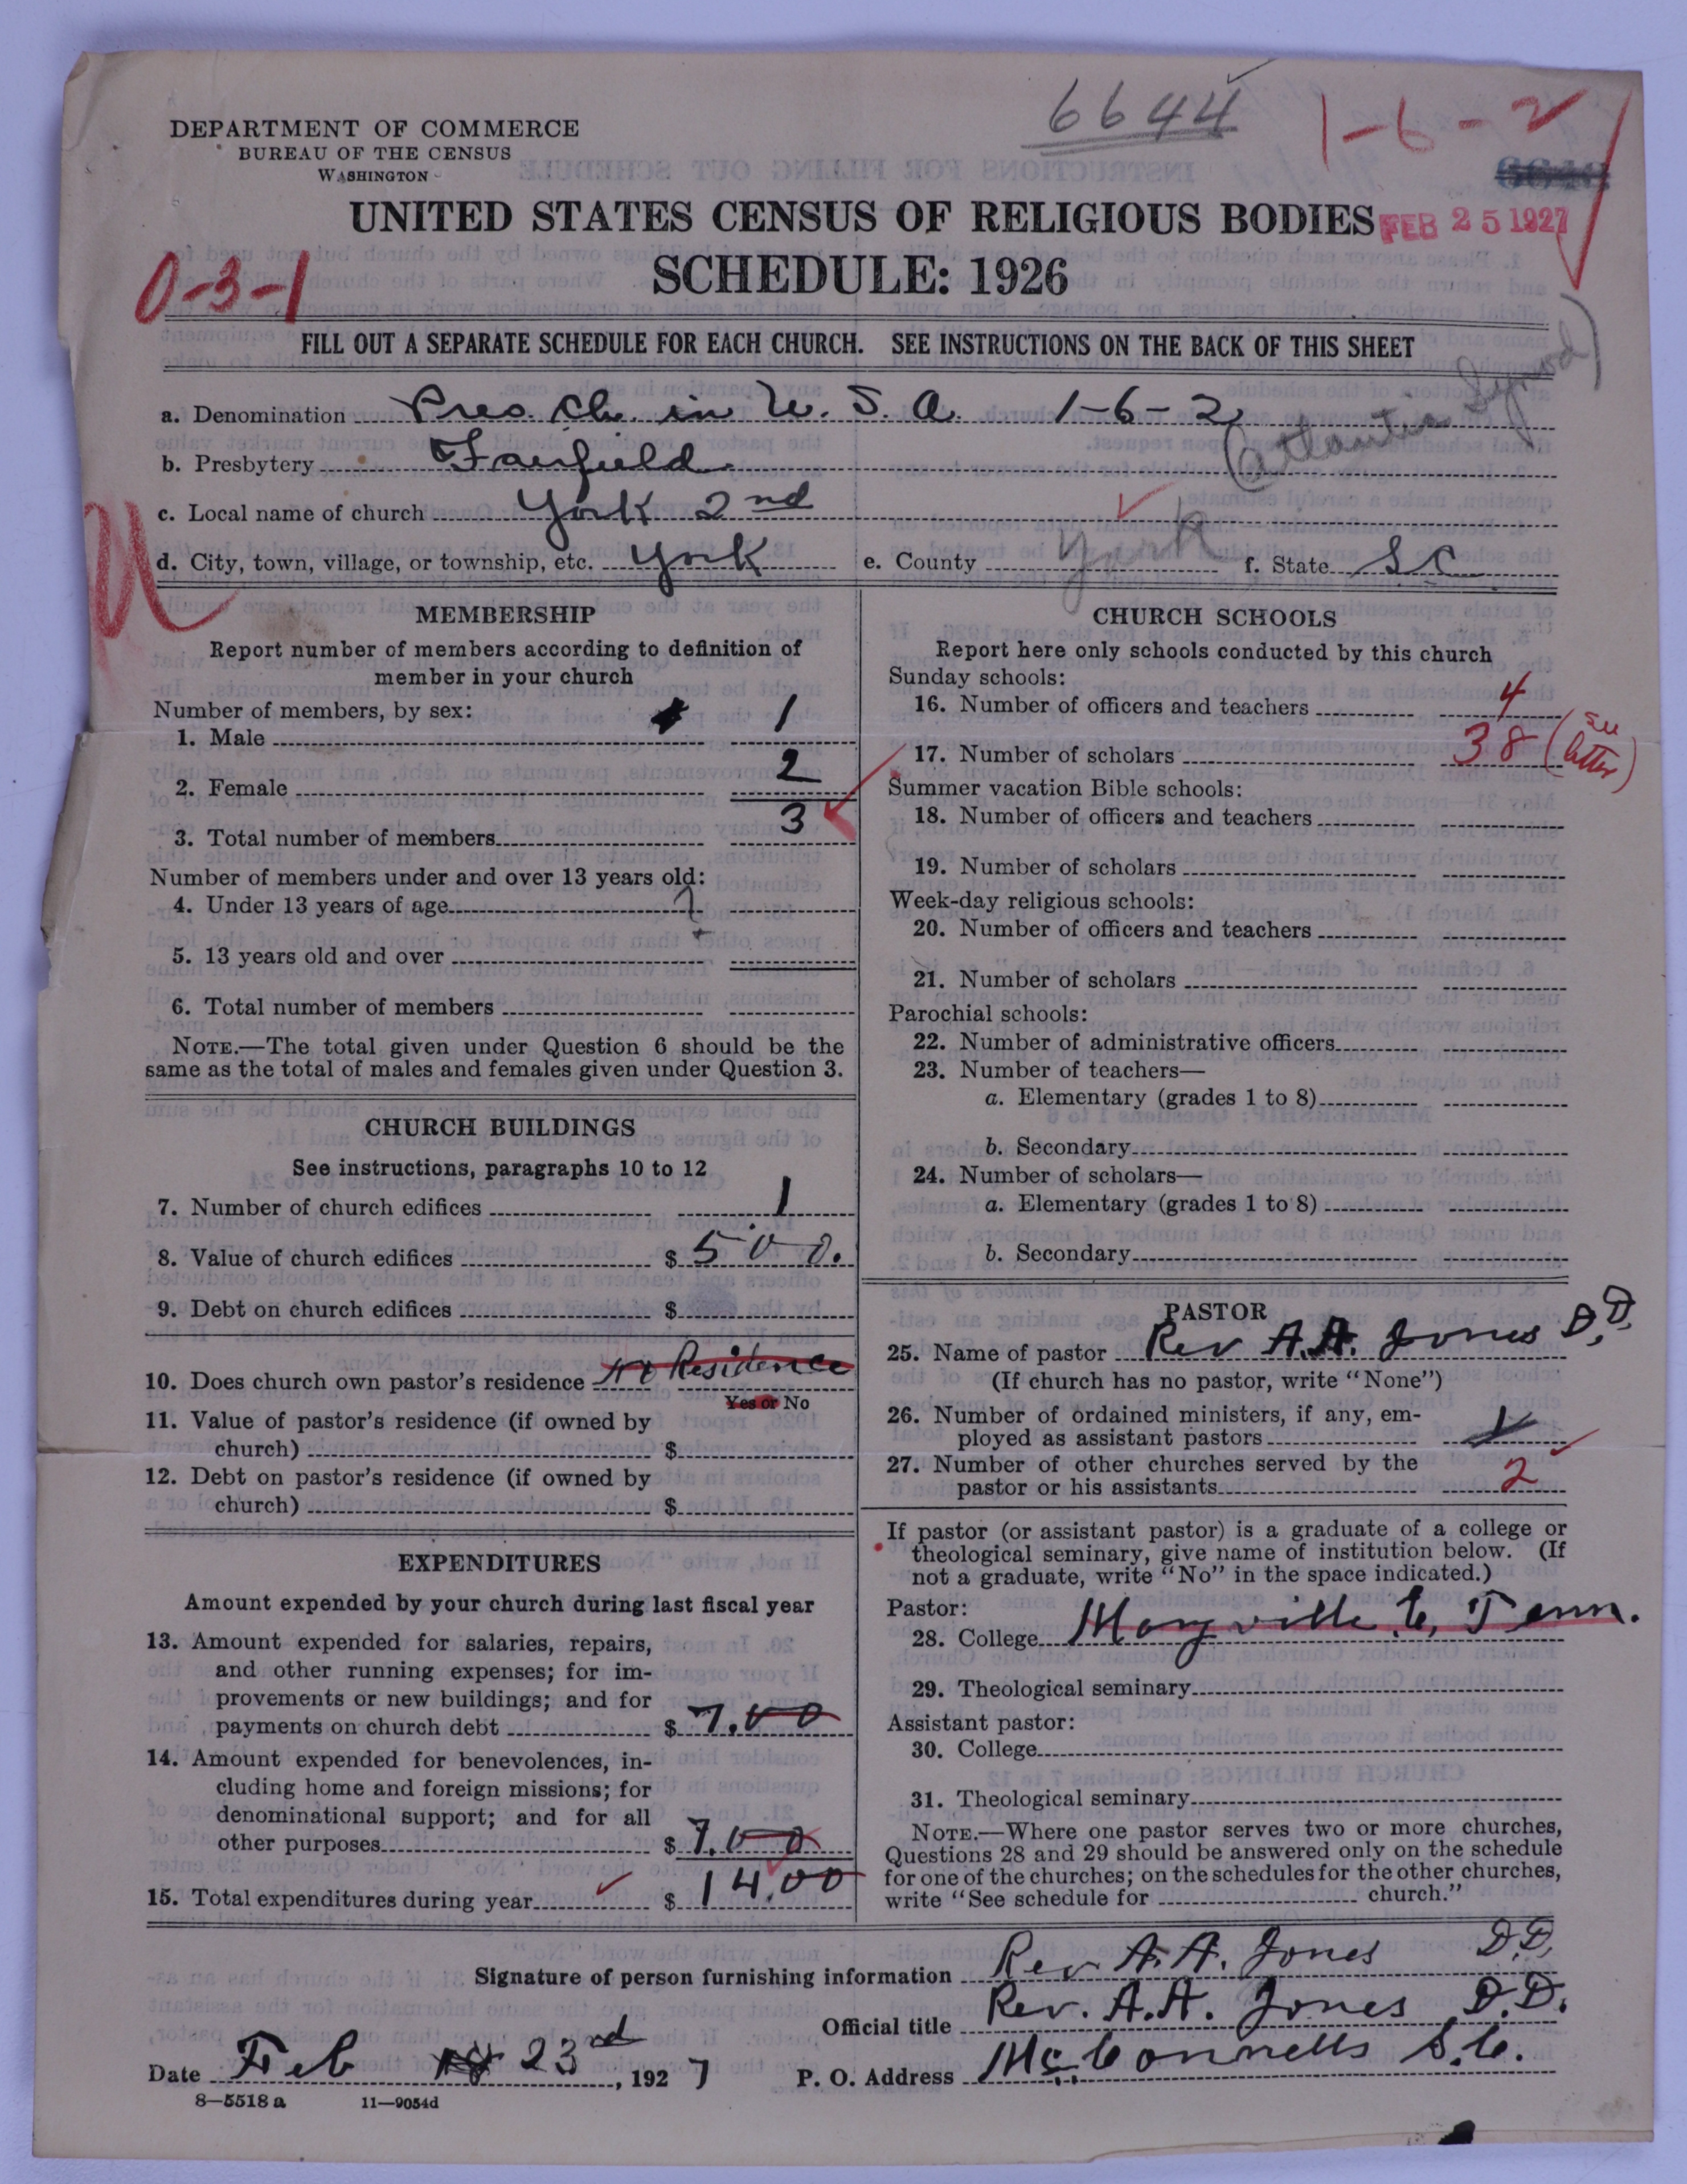 6644
1-6-2
DEPARTMENT OF COMMERCE
BUREAU OF THE CENSUS
WASHINGTON
UNITED STATES CENSUS OF RELIGIOUS BODIES
FEB 25 1927
SCHEDULE: 1926
0-3-1
FILL OUT A SEPARATE SCHEDULE FOR EACH CHURCH. SEE INSTRUCTIONS ON THE BACK OF THIS SHEET
a. Denomination Pres. Ch. in U. S. A. 1-6-2
(Atlantic Synod)
b. Presbytery Fairfield
c. Local name of church York 2nd
d. City, town, village, or township, etc. York e. County York f. State SC
MEMBERSHIP
Report number of members according to definition of
member in your church
Number of members, by sex:
1. Male 1
2. Female 2
3. Total number of members 3
Number of members under and over 13 years old:
4. Under 13 years of age ?
5. 13 years old and over
6. Total number of members
NOTE.—The total given under Question 6 should be the
same as the total of males and females given under Question 3.
CHURCH BUILDINGS
See instructions, paragraphs 10 to 12
7. Number of church edifices 1
8. Value of church edifices $ 500.
9. Debt on church edifices $
10. Does church own pastor's residence No Residence
Yes or No
11. Value of pastor's residence (if owned by
church) $
12. Debt on pastor's residence (if owned by
church) $
EXPENDITURES
Amount expended by your church during last fiscal year
13. Amount expended for salaries, repairs,
and other running expenses; for im-
provements or new buildings; and for
payments on church debt $ 7.00
14. Amount expended for benevolences, in-
cluding home and foreign missions; for
denominational support; and for all
other purposes $ 7.00
15. Total expenditures during year $ 14.00
CHURCH SCHOOLS
Report here only schools conducted by this church
Sunday schools:
16. Number of officers and teachers 4
17. Number of scholars 38 (see letter)
Summer vacation Bible schools:
18. Number of officers and teachers
19. Number of scholars
Week-day religious schools:
20. Number of officers and teachers
21. Number of scholars
Parochial schools:
22. Number of administrative officers
23. Number of teachers—
a. Elementary (grades 1 to 8)
b. Secondary
24. Number of scholars—
a. Elementary (grades 1 to 8)
b. Secondary
PASTOR
25. Name of pastor Rev A.A. Jones D.D.
(If church has no pastor, write "None")
26. Number of ordained ministers, if any, em-
ployed as assistant pastors 1
27. Number of other churches served by the
pastor or his assistants 2
If pastor (or assistant pastor) is a graduate of a college or
theological seminary, give name of institution below. (If
not a graduate, write "No" in the space indicated.)
Pastor:
28. College Maryville C, Tenn.
29. Theological seminary
Assistant pastor:
30. College
31. Theological seminary
NOTE.—Where one pastor serves two or more churches,
Questions 28 and 29 should be answered only on the schedule
for one of the churches; on the schedules for the other churches,
write "See schedule for church."
Signature of person furnishing information Rev A. A. Jones D.D.
Official title Rev. A. A. Jones D.D.
Date Feb 23rd, 1927 P. O. Address McConnells S.C.
8—5518 a 11—9054d